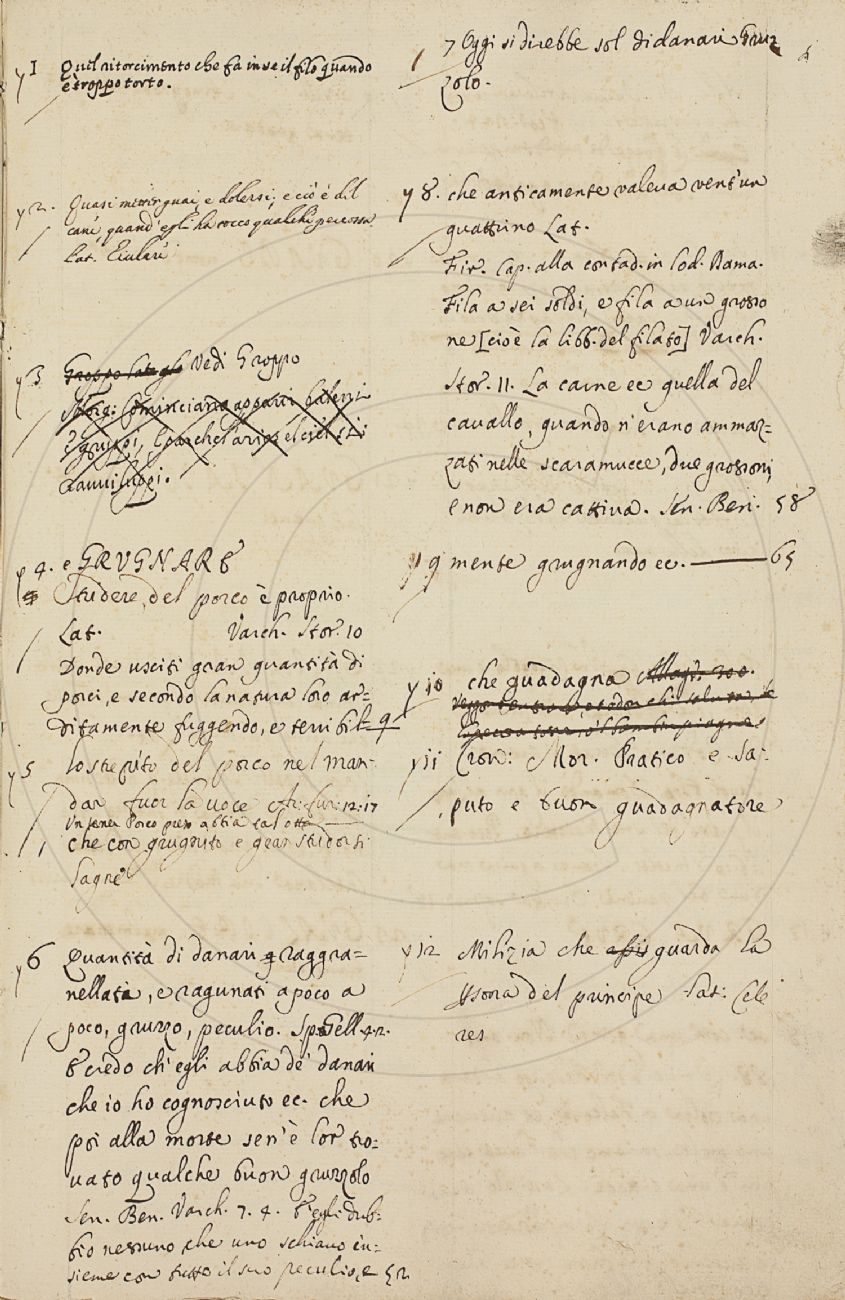 y 1 Quel ritorcimento che fa in se il filo quando
è troppo torto.
y 2. Quasi rammaricarsi, e dolersi, e ciò è del
cane, quand' egli ha tocco qualche percossa
Lat. Eiulare
y 3 Vedi Groppo
Storg: Cominciano apparir baleni
e gruppi,
Ravviluppi.
y 4. e GRUGNARE
Stridere, del porco è proprio.
Lat. Varch. Stor. 10
Donde usciti gran quantità di
porci, e secondo la natura loro ar=
ditamente fuggendo, e terribil- 9
y 5 lo strepito del porco nel man-
dar fuor la voce Ar. fur. 12. 17
che con grugnito e gran stridor si
lagne
y 6 Quantità di danari raggra=
nellata, e ragunati a poco a
poco, gruzzo, peculio. Sp. Gell. 4. 2.
E credo ch' egli abbia de' danari
che io ho cognosciuto ec. che
poi alla morte sen' è lor tro=
vato qualche buon gruzzolo
Sen. Ben. Varch. 7. 4. E egli dub=
bio nessuno, che uno schiavo in=
sieme con tutto il suo peculio, e 52
7 Oggi si direbbe sol di danari Gruz
zolo.
y 8. che anticamente valeva vent'un
quattrino Lat.
Fir. Cap. alla contad. in lod. Dama.
Fila a sei soldi, e fila a un grosso
ne [cioè la libb. del filato] Varch.
Stor. 11. La carne ec quella del
cavallo, quando n' erano ammaz=
zati nelle scaramucce, due grossoni,
e non era cattiva. Sen. Ben. 58
y 9 mente grugnando ec. 65
y 10 che guadagna
y 11 Cron: Mor. Pratico e sa-
puto e buon guadagnatore
y 12 Milizia che guarda la
Psona del principe Lat: Cele
res